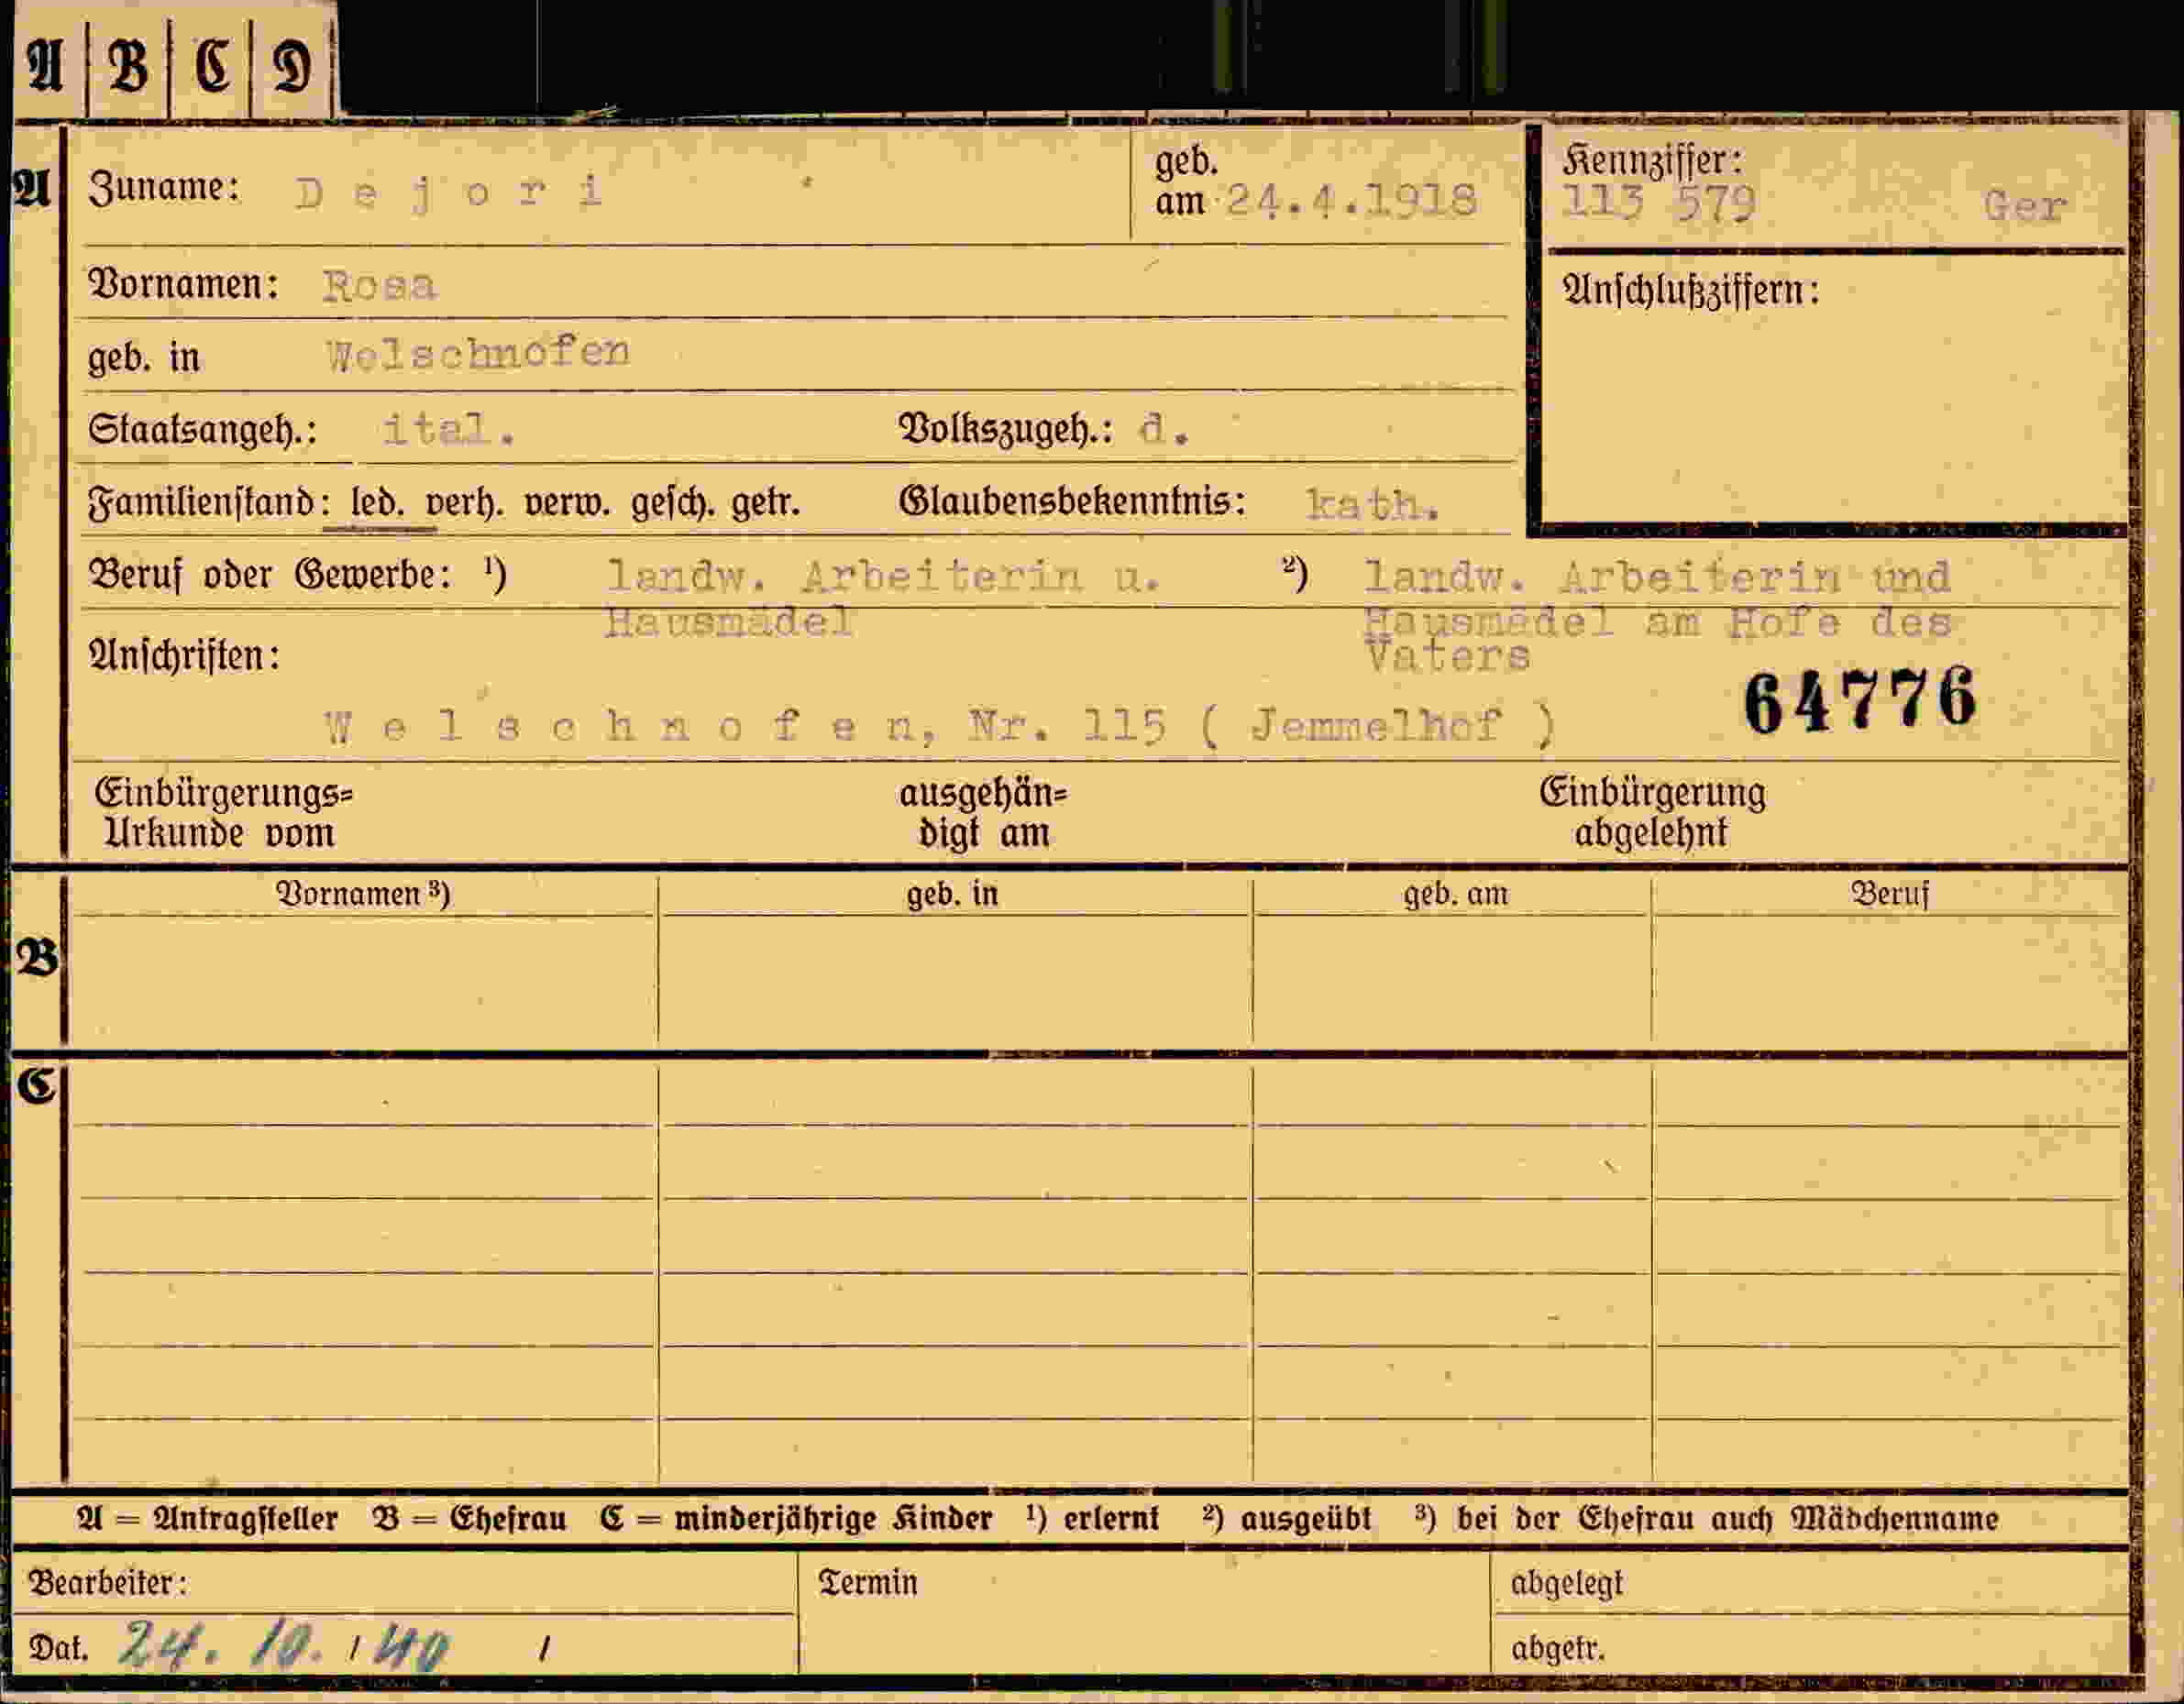 A B C D
A Zuname: Dejori geb. am 24.4.1918 Kennziffer: 113 579 Ger
Vornamen: Rosa Anschlußziffern:
geb. in Welschnofen
Staatsangeh.: ital. Volkszugeh.: d.
Familienstand: led. verh. verw. gesch. getr. Glaubensbekenntnis: kath.
Beruf oder Gewerbe: ¹) landw. Arbeiterin u. ²) landw. Arbeiterin und
Hausmädel Hausmädel am Hofe des
Anschriften: Vaters
64776
Welschnofen, Nr. 115 ( Jemmelhof )
Einbürgerungs= ausgehän= Einbürgerung
Urkunde vom digt am abgelehnt
Vornamen ³) geb. in geb. am Beruf
B
C
A = Antragsteller B = Ehefrau C = minderjährige Kinder ¹) erlernt ²) ausgeübt ³) bei der Ehefrau auch Mädchenname
Bearbeiter: Termin abgelegt
Dat. 24. 10. / 40 / abgetr.